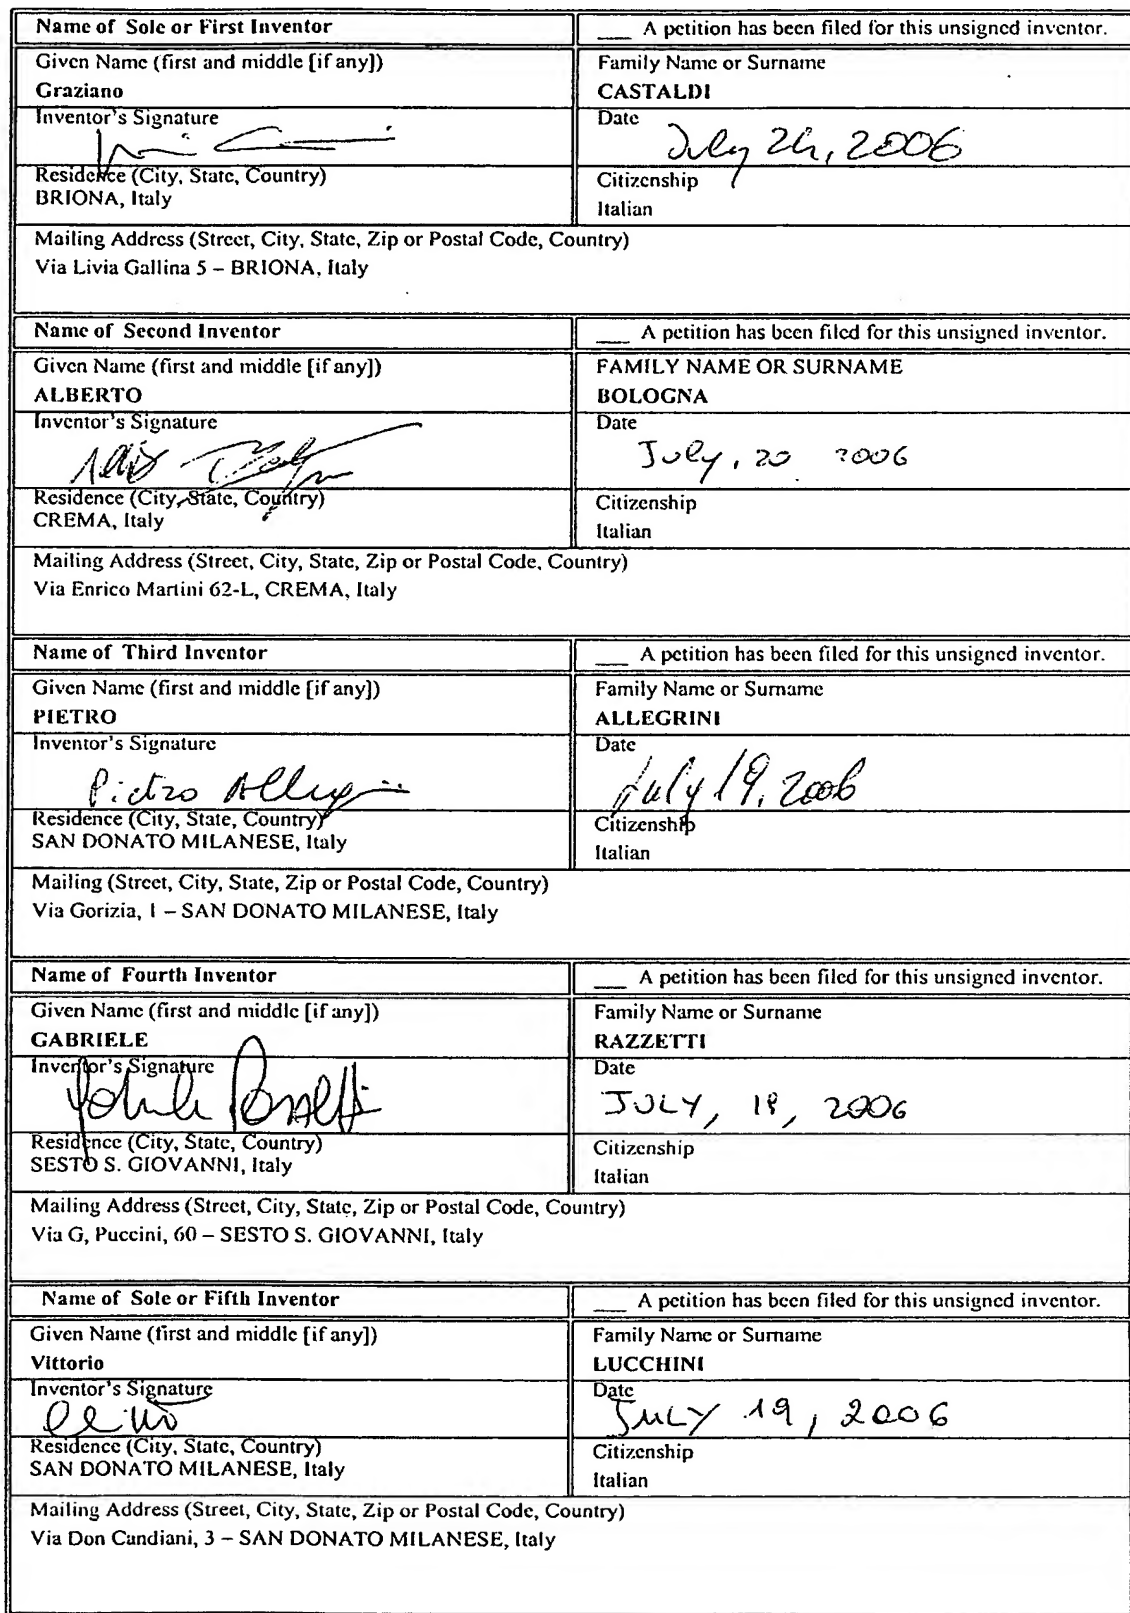 Name of Sole or First Inventor ___ A petition has been filed for this unsigned inventor.
Given Name (first and middle [if any]) Family Name or Surname
Graziano CASTALDI
Inventor's Signature Date
July 24, 2006
Residence (City, State, Country) Citizenship
BRIONA, Italy Italian
Mailing Address (Street, City, State, Zip or Postal Code, Country)
Via Livia Gallina 5 – BRIONA, Italy
Name of Second Inventor ___ A petition has been filed for this unsigned inventor.
Given Name (first and middle [if any]) FAMILY NAME OR SURNAME
ALBERTO BOLOGNA
Inventor's Signature Date
July, 20 2006
Residence (City, State, Country) Citizenship
CREMA, Italy Italian
Mailing Address (Street, City, State, Zip or Postal Code, Country)
Via Enrico Martini 62-L, CREMA, Italy
Name of Third Inventor ___ A petition has been filed for this unsigned inventor.
Given Name (first and middle [if any]) Family Name or Surname
PIETRO ALLEGRINI
Inventor's Signature Date
Pietro Allegrini July 19, 2006
Residence (City, State, Country) Citizenship
SAN DONATO MILANESE, Italy Italian
Mailing (Street, City, State, Zip or Postal Code, Country)
Via Gorizia, 1 – SAN DONATO MILANESE, Italy
Name of Fourth Inventor ___ A petition has been filed for this unsigned inventor.
Given Name (first and middle [if any]) Family Name or Surname
GABRIELE RAZZETTI
Inventor's Signature Date
JULY, 18, 2006
Residence (City, State, Country) Citizenship
SESTO S. GIOVANNI, Italy Italian
Mailing Address (Street, City, State, Zip or Postal Code, Country)
Via G, Puccini, 60 – SESTO S. GIOVANNI, Italy
Name of Sole or Fifth Inventor ___ A petition has been filed for this unsigned inventor.
Given Name (first and middle [if any]) Family Name or Surname
Vittorio LUCCHINI
Inventor's Signature Date
JULY 19, 2006
Residence (City, State, Country) Citizenship
SAN DONATO MILANESE, Italy Italian
Mailing Address (Street, City, State, Zip or Postal Code, Country)
Via Don Candiani, 3 – SAN DONATO MILANESE, Italy